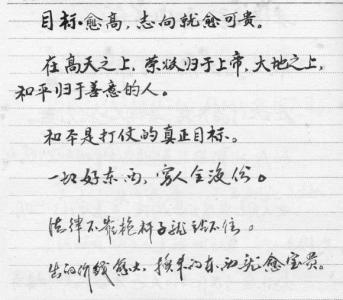 目标愈高，志向就愈可贵。
在高天之上，荣收归于上帝，大地之上，
和平归于善意的人。
和平是打仗的真正目标。
一切好东西，穷人全没份。
法律不靠枪杆子就站不住。
出的价钱愈大，换来的东西就愈宝贵。